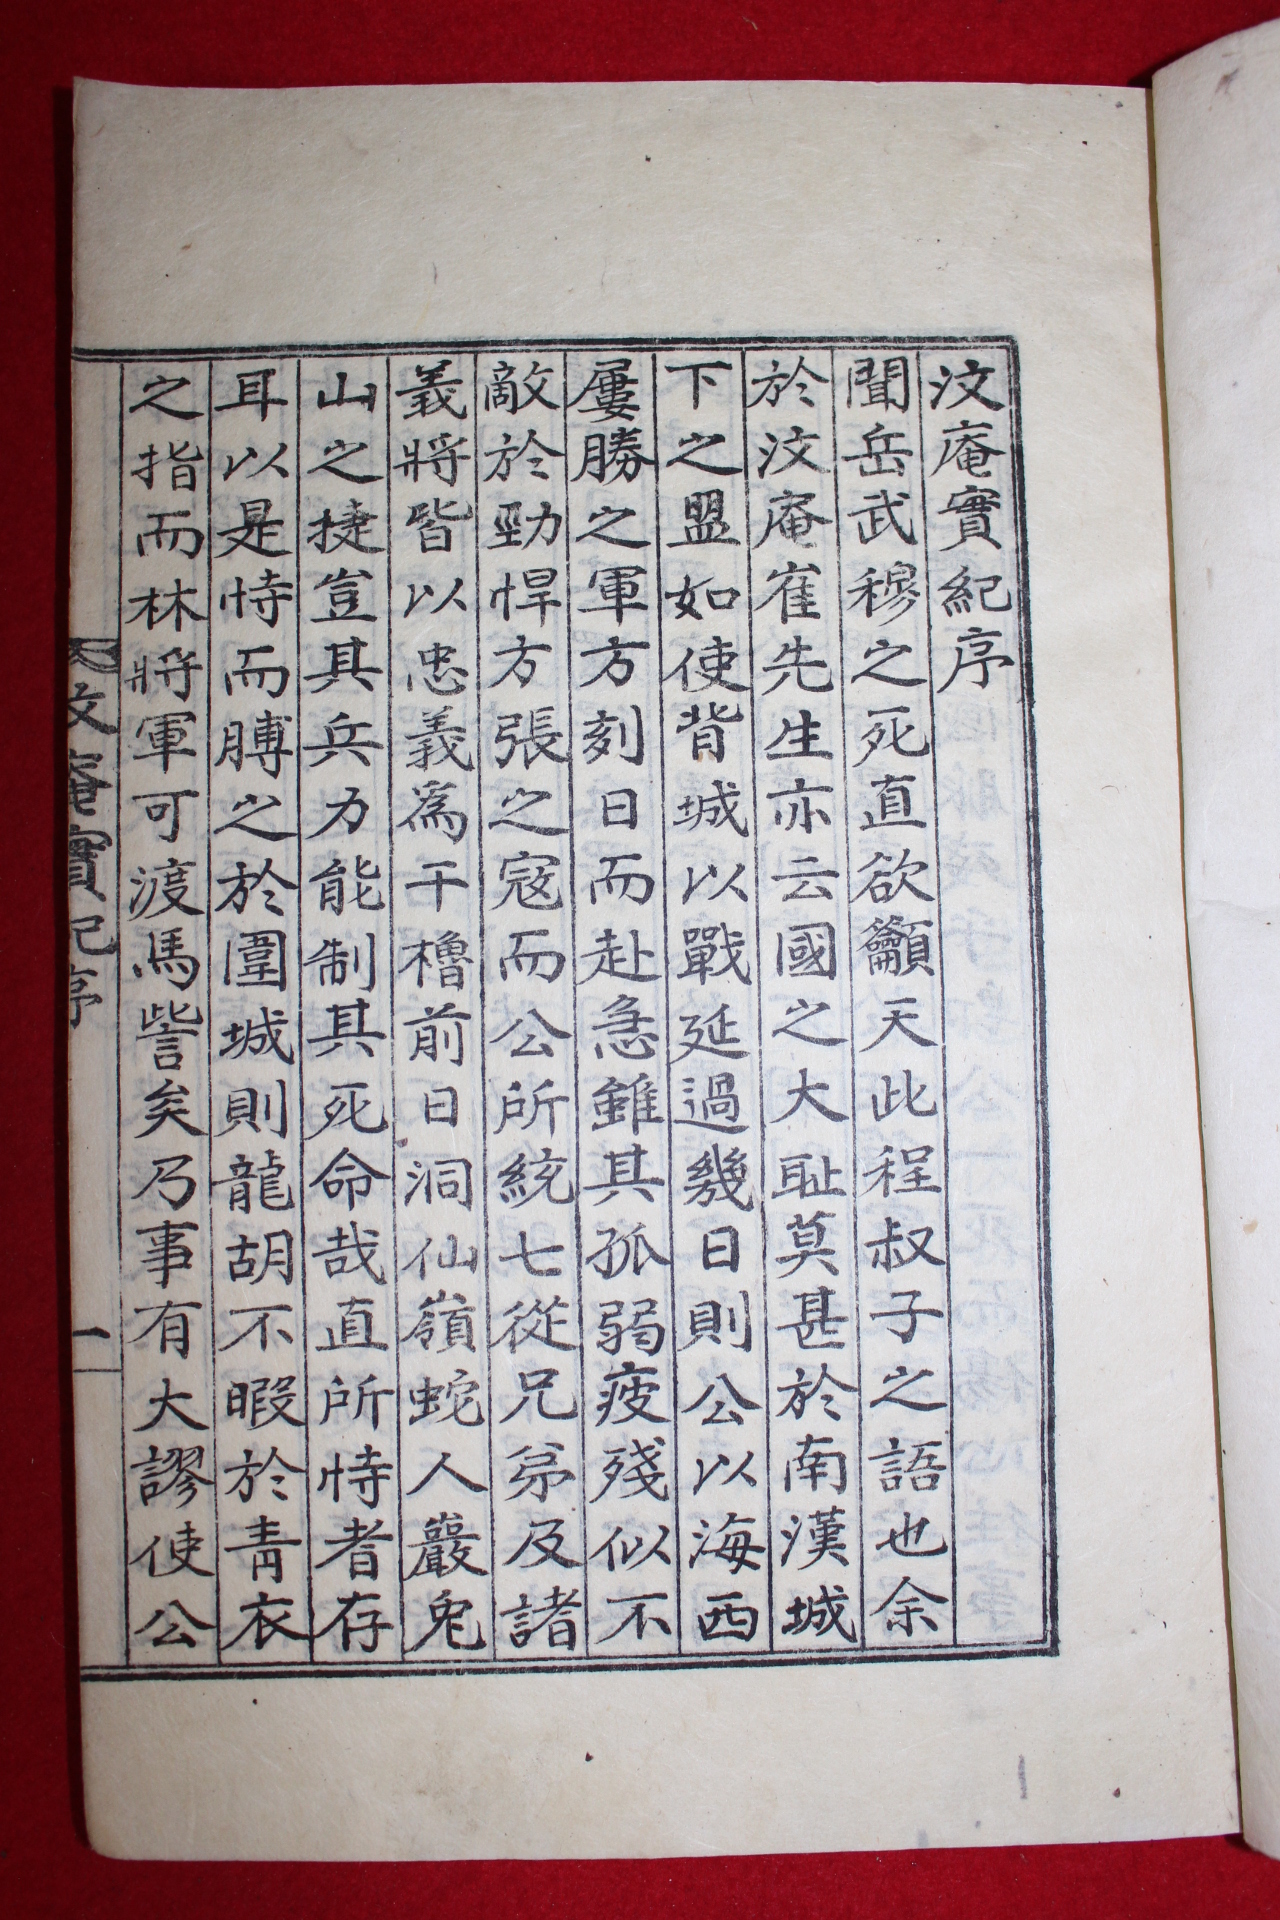 汶庵實紀序
聞岳武穆之死直欲籲天此程叔子之語也余
於汶庵崔先生亦云國之大耻莫甚於南漢城
下之盟如使背城以戰延過幾日則公以海西
屢勝之軍方刻日而赴急雖其孤弱疲殘似不
敵於勁悍方張之寇而公所統七從兄弟及諸
義將皆以忠義爲干櫓前日洞仙嶺蛇人巖兔
山之捷豈其兵力能制其死命哉直所恃者存
耳以是恃而膊之於圍城則龍胡不暇於靑衣
之指而林將軍可渡馬訾矣乃事有大謬使公
汶庵實紀序
一